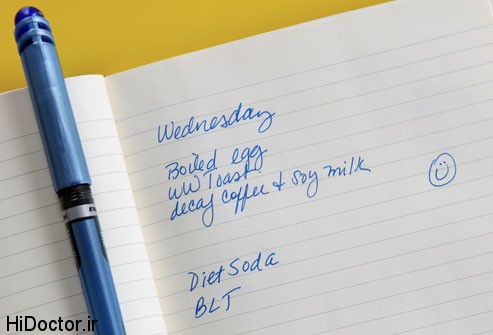 Wednesday
Boiled egg
WW Toast
decaf coffee + soy milk
Diet Soda
BLT
HiDoctor.ir